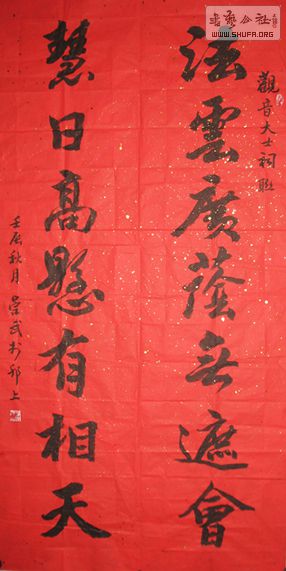 書藝公社
WWW.SHUFA.ORG
觀音大士祠聯
法雲廣蔭無遮會
慧日高懸有相天
壬辰秋月 武於邗上